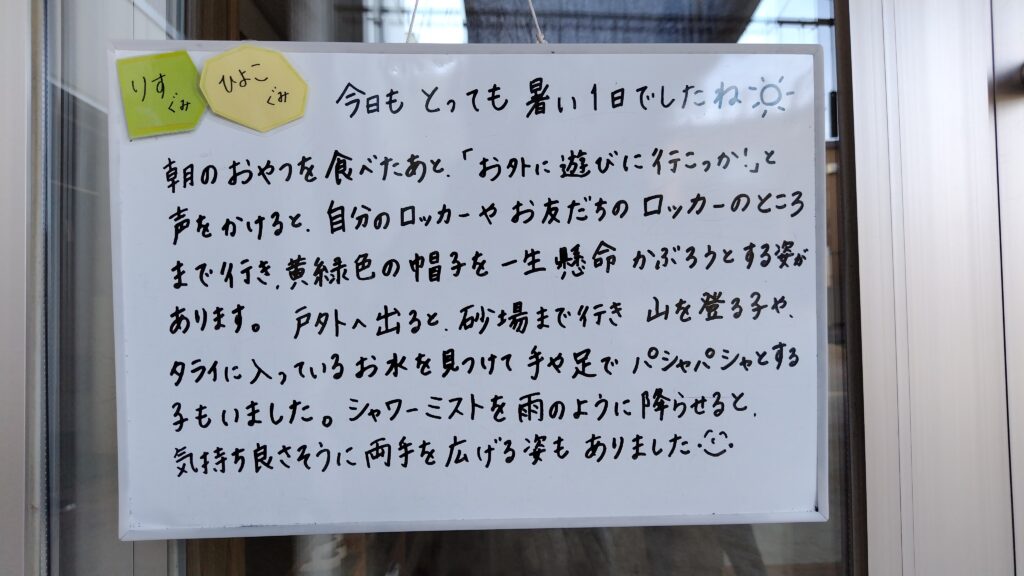 りす
ぐみ
ひよこ
ぐみ
今日も とっても 暑い1日でしたね
朝のおやつを食べたあと、「お外に遊びに行こっか!」と
声をかけると、自分のロッカーやお友だちのロッカーのところ
まで行き、黄緑色の帽子を一生懸命かぶろうとする姿が
あります。 戸外へ出ると、砂場まで行き 山を登る子や、
タライに入っているお水を見つけて手や足でパシャパシャとする
子もいました。シャワーミストを雨のように降らせると、
気持ち良さそうに両手を広げる姿もありました